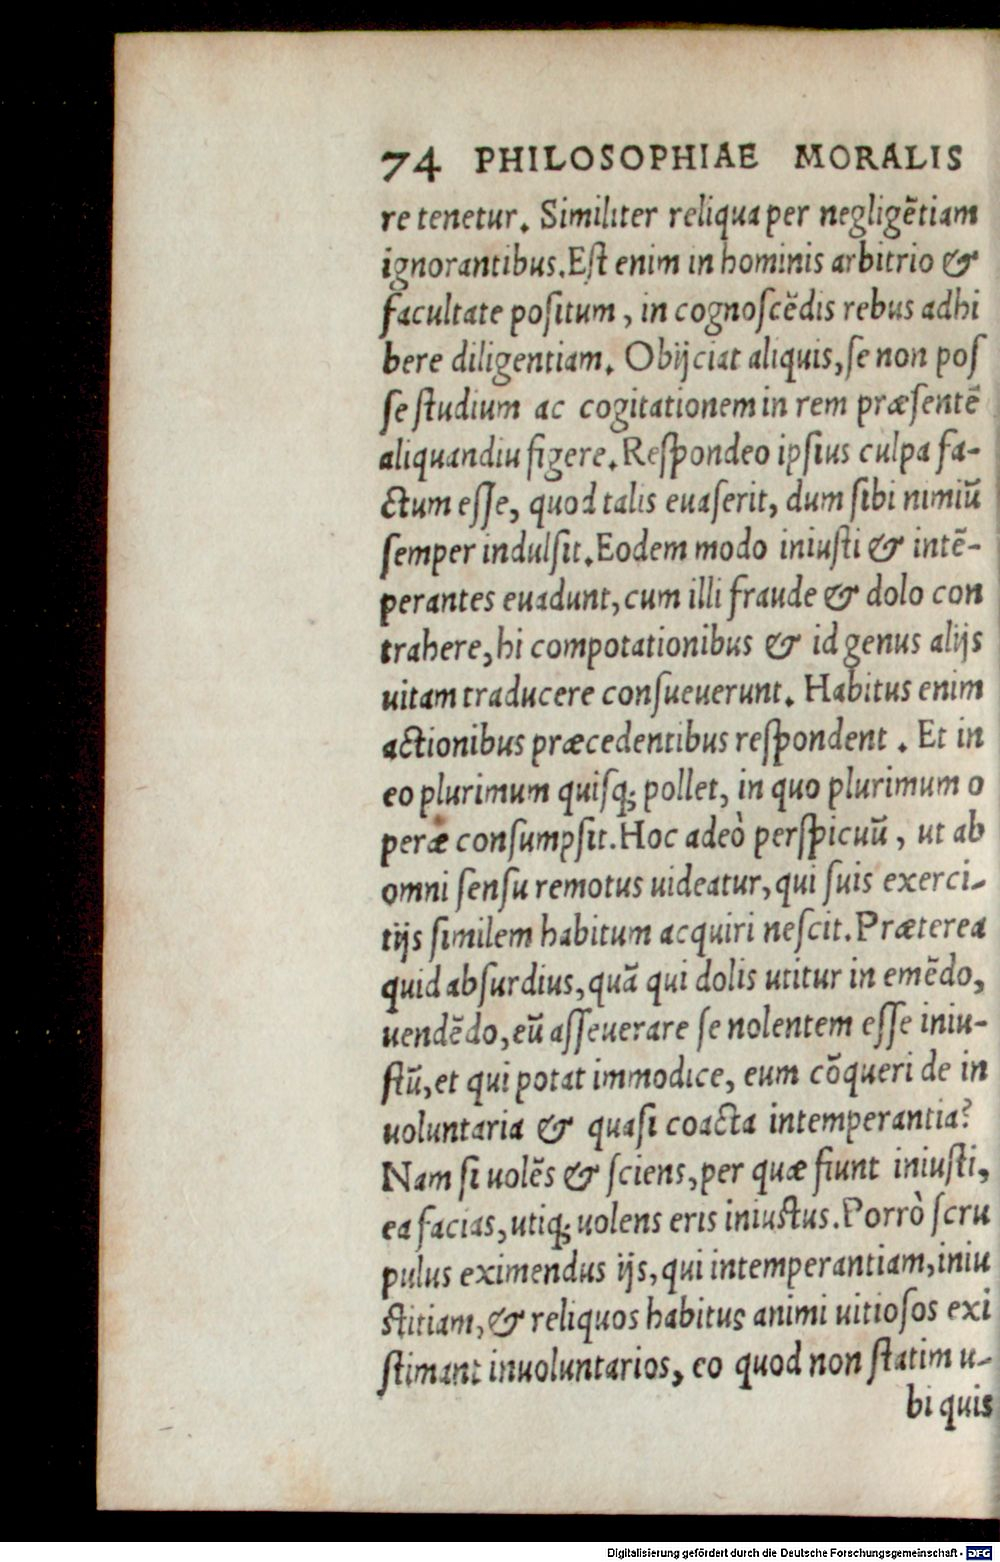 74 PHILOSOPHIAE MORALIS
re tenetur. Similiter reliqua per negligẽtiam
ignorantibus. Eſt enim in hominis arbitrio &
facultate poſitum, in cognoſcẽdis rebus adhi
bere diligentiam. Obijciat aliquis, ſe non poſ
ſe ſtudium ac cogitationem in rem præſentẽ
aliquandiu figere. Reſpondeo ipſius culpa fa-
ctum eſſe, quod talis euaſerit, dum ſibi nimiũ
ſemper indulſit. Eodem modo iniuſti & intẽ-
perantes euadunt, cum illi fraude & dolo con
trahere, hi compotationibus & id genus alijs
uitam traducere conſueuerunt. Habitus enim
actionibus præcedentibus reſpondent. Et in
eo plurimum quiſq; pollet, in quo plurimum o
peræ conſumpſit. Hoc adeò perſpicuũ, ut ab
omni ſenſu remotus uideatur, qui ſuis exerci-
tijs ſimilem habitum acquiri neſcit. Præterea
quid abſurdius, quã qui dolis utitur in emẽdo,
uendẽdo, eũ aſſeuerare ſe nolentem eſſe iniu-
ſtũ, et qui potat immodice, eum cõqueri de in
uoluntaria & quaſi coacta intemperantia?
Nam ſi uolẽs & ſciens, per quæ fiunt iniuſti,
ea facias, utiq; uolens eris iniuſtus. Porrò ſcru
pulus eximendus ijs, qui intemperantiam, iniu
ſtitiam, & reliquos habitus animi uitioſos exi
ſtimant inuoluntarios, eo quod non ſtatim u-
bi quis
Digitalisierung gefördert durch die Deutsche Forschungsgemeinschaft - DFG